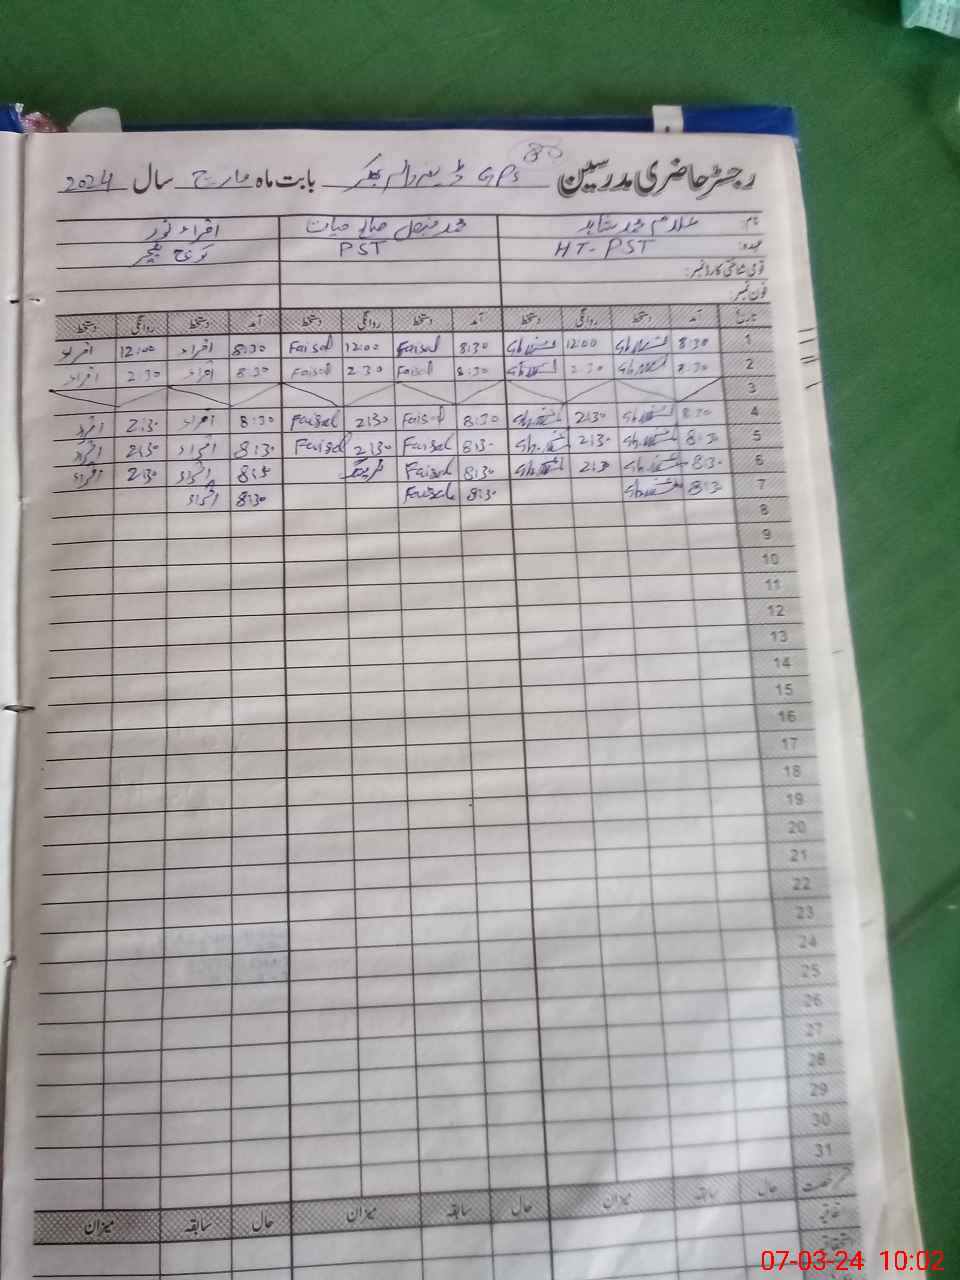 رجسٹر حاضری مدرسین GPS بابت ماہ مارچ سال 2024
نام: غلام محمد شاہد محمد فیصل حیات اقراء نور
عہدہ: HT-PST PST کوچ ٹیچر
قومی شناختی کارڈ نمبر:
فون نمبر:
تاریخ آمد دستخط روانگی دستخط آمد دستخط روانگی دستخط آمد دستخط روانگی دستخط
1 8:30 12:00 8:30 Faisal 12:00 Faisal 8:30 اقراء 12:00 اقراء
2 8:30 2:30 8:30 Faisal 2:30 Faisal 8:30 اقراء 2:30 اقراء
3
4 8:30 2:30 8:30 Faisal 2:30 Faisal 8:30 اقراء 2:30 اقراء
5 8:30 2:30 8:30 Faisal 2:30 Faisal 8:30 اقراء 2:30 اقراء
6 8:30 2:30 8:30 Faisal 8:25 اقراء 2:30 اقراء
7 8:30 8:30 Faisal 8:30 اقراء
8
9
10
11
12
13
14
15
16
17
18
19
20
21
22
23
24
25
26
27
28
29
30
31
حال سابقہ میزان حال سابقہ میزان حال سابقہ میزان
07-03-24 10:02